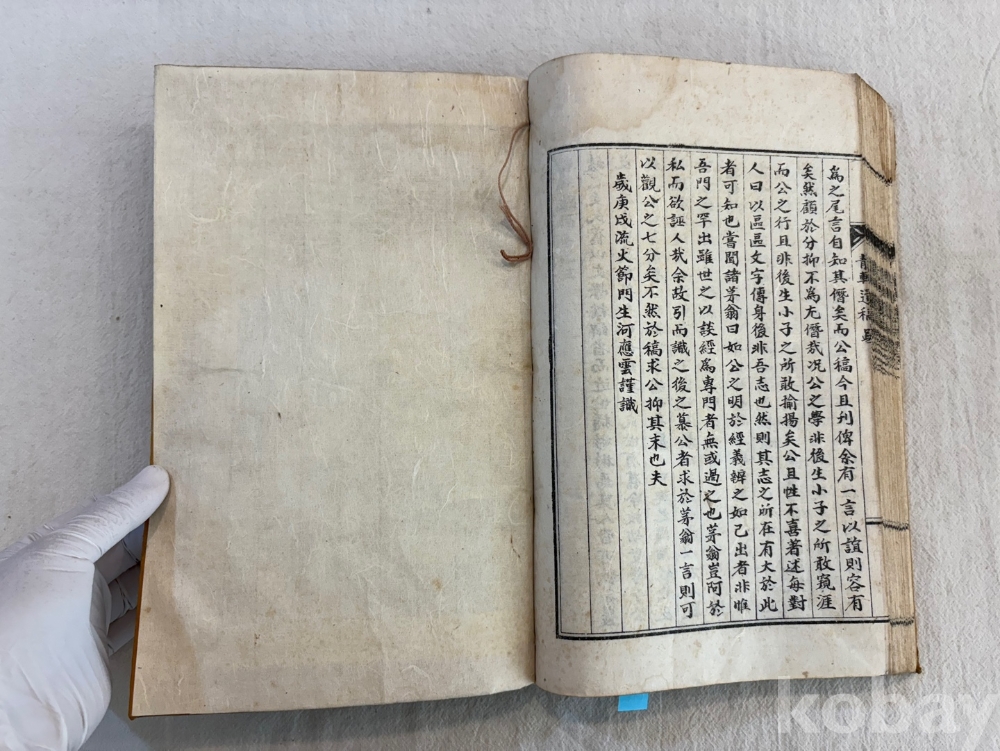 爲之尾言自知其僭矣而公稿今且刊俾余有一言以誼則容有
矣然顧於分抑不爲尤僭哉况公之學非後生小子之所敢窺涯
而公之行且非後生小子之所敢揄揚矣公且性不喜著述每對
人曰以區區文字傳身後非吾志也然則其志之所在有大於此
者可知也嘗聞諸茅翁曰如公之明於經義辨之如己出者非惟
吾門之罕出雖世之以談經爲專門者無或過之也茅翁豈阿於
私而欲誣人哉余故引而識之後之慕公者求於茅翁一言則可
以觀公之七分矣不然於稿求公抑其末也夫
歲庚戌流火節門生河應雲謹識
遺稿
kobay